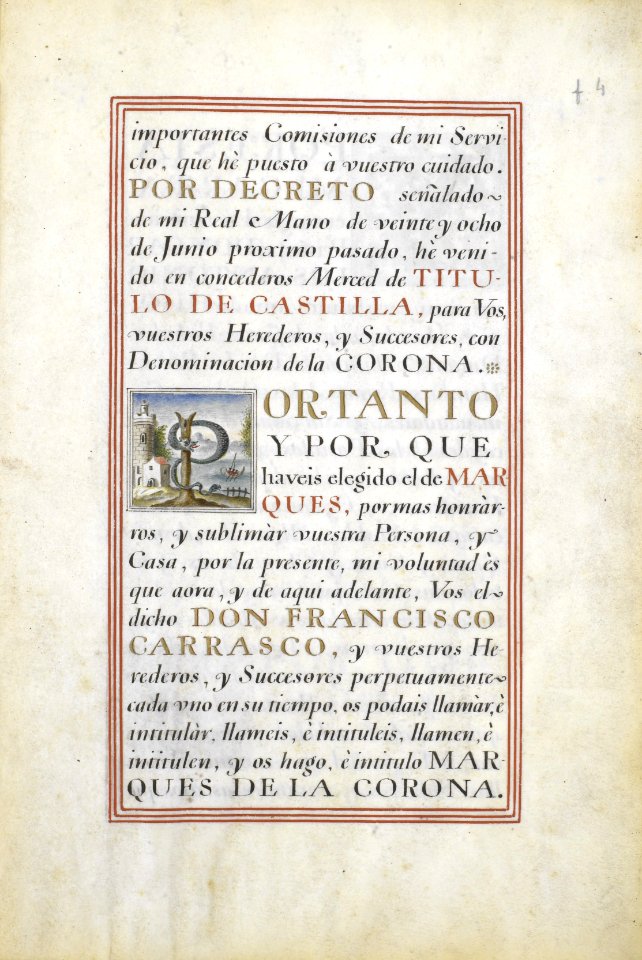 f. 4
importantes Comisiones de mi Servi-
cio, que hè puesto à vuestro cuidado.
POR DECRETO señalado~
de mi Real Mano de veinte y ocho
de Junio proximo pasado, hè veni-
do en concederos Merced de TITU-
LO DE CASTILLA, para Vos,
vuestros Herederos, y Succesores, con
Denominacion de la CORONA.
PORTANTO
Y POR QUE
haveis elegido el de MAR-
QUES, por mas honràr-
ros, y sublimàr vuestra Persona, y
Casa, por la presente, mi voluntad ès
que aora, y de aqui adelante, Vos el~
dicho DON FRANCISCO
CARRASCO, y vuestros He-
rederos, y Succesores perpetuamente~
cada vno en su tiempo, os podais llamàr, è
intitulàr, llameis, è intituleis, llamen, è
intitulen, y os hago, è intitulo MAR-
QUES DE LA CORONA.